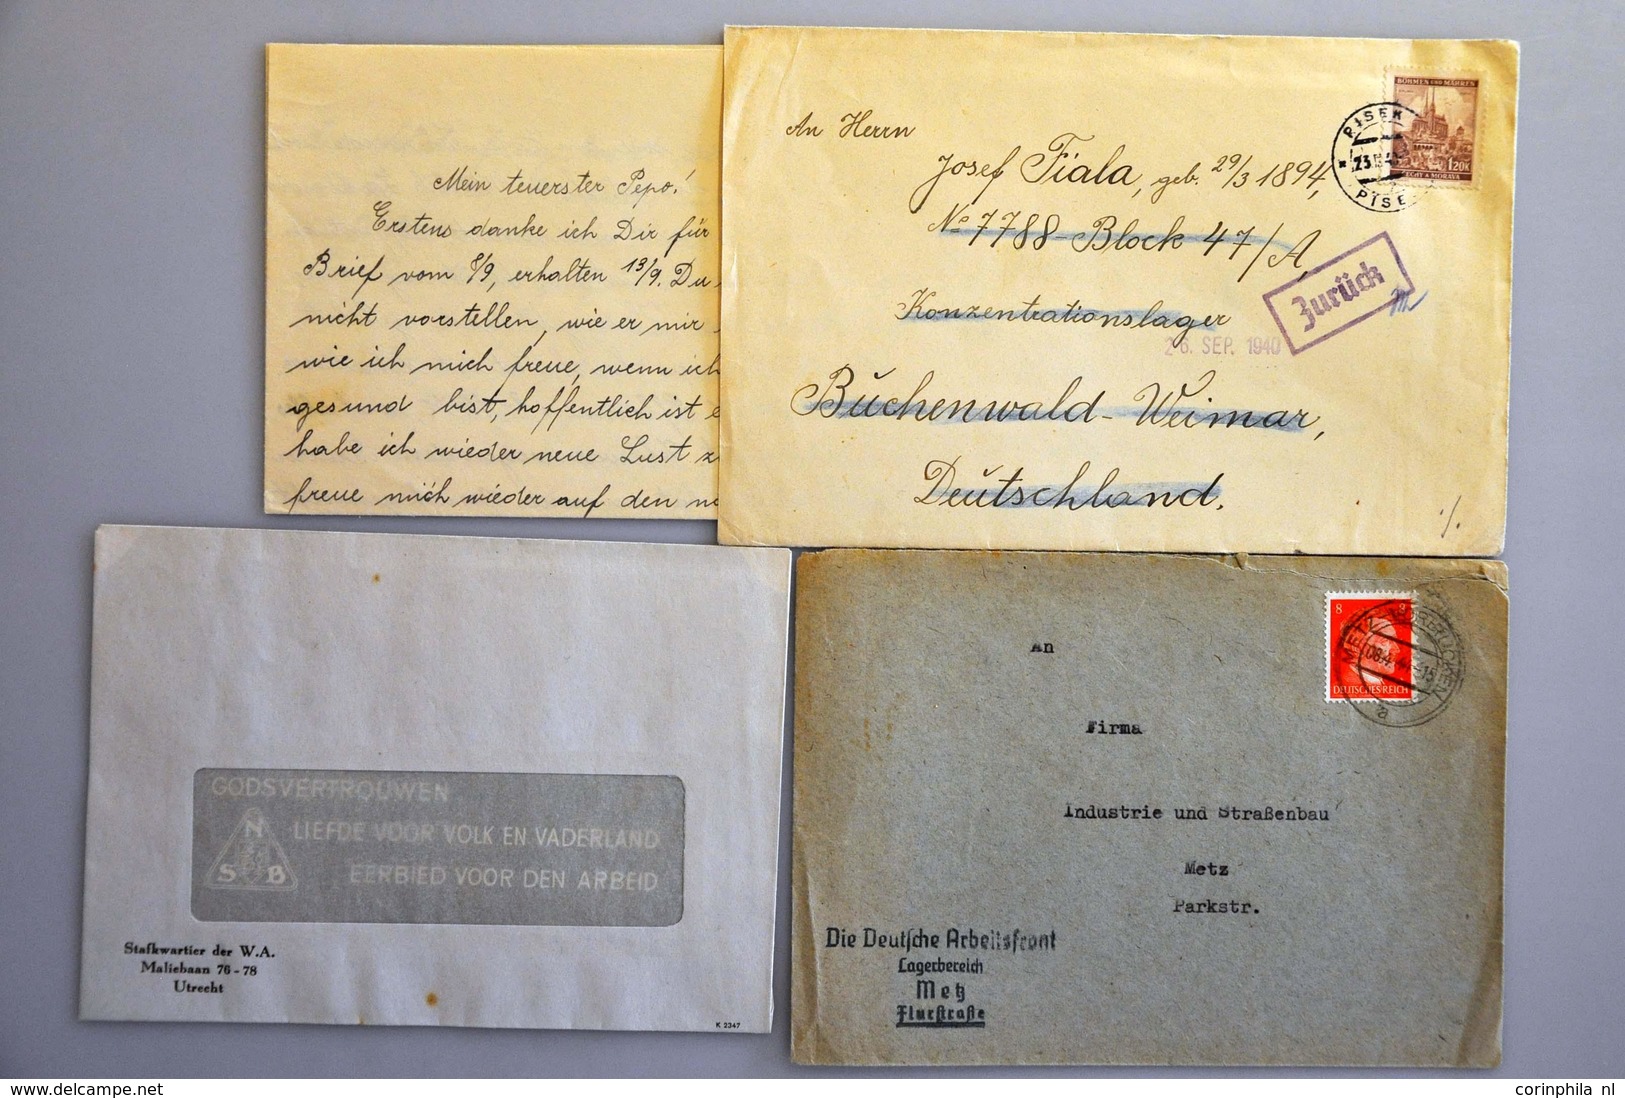 Mein teuerster Pepo!
Erstens danke ich Dir für
Brief vom 8/9, erhalten 13/9. Du
nicht vorstellen, wie er mir
wie ich mich freue, wenn ich
gesund bist, hoffentlich ist
habe ich wieder neue Lust
freue mich wieder auf den
An Herrn
Josef Fiala, geb. 29/3 1894,
No 7788-Block 47/A,
Konzentrationslager
Buchenwald-Weimar,
Deutschland.
BÖHMEN UND MÄHREN
1.20K
ČECHY A MORAVA
PISEK
PÍSE
Zurück
26. SEP. 1940
GODSVERTROUWEN
LIEFDE VOOR VOLK EN VADERLAND
EERBIED VOOR DEN ARBEID
N
S B
Stafkwartier der W.A.
Maliebaan 76-78
Utrecht
K 2347
8
DEUTSCHES REICH
METZ
a
An
Firma
Industrie und Straßenbau
Metz
Parkstr.
Die Deutsche Arbeitsfront
Lagerbereich
Metz
Flurstraße
www.delcampe.net
corinphila nl